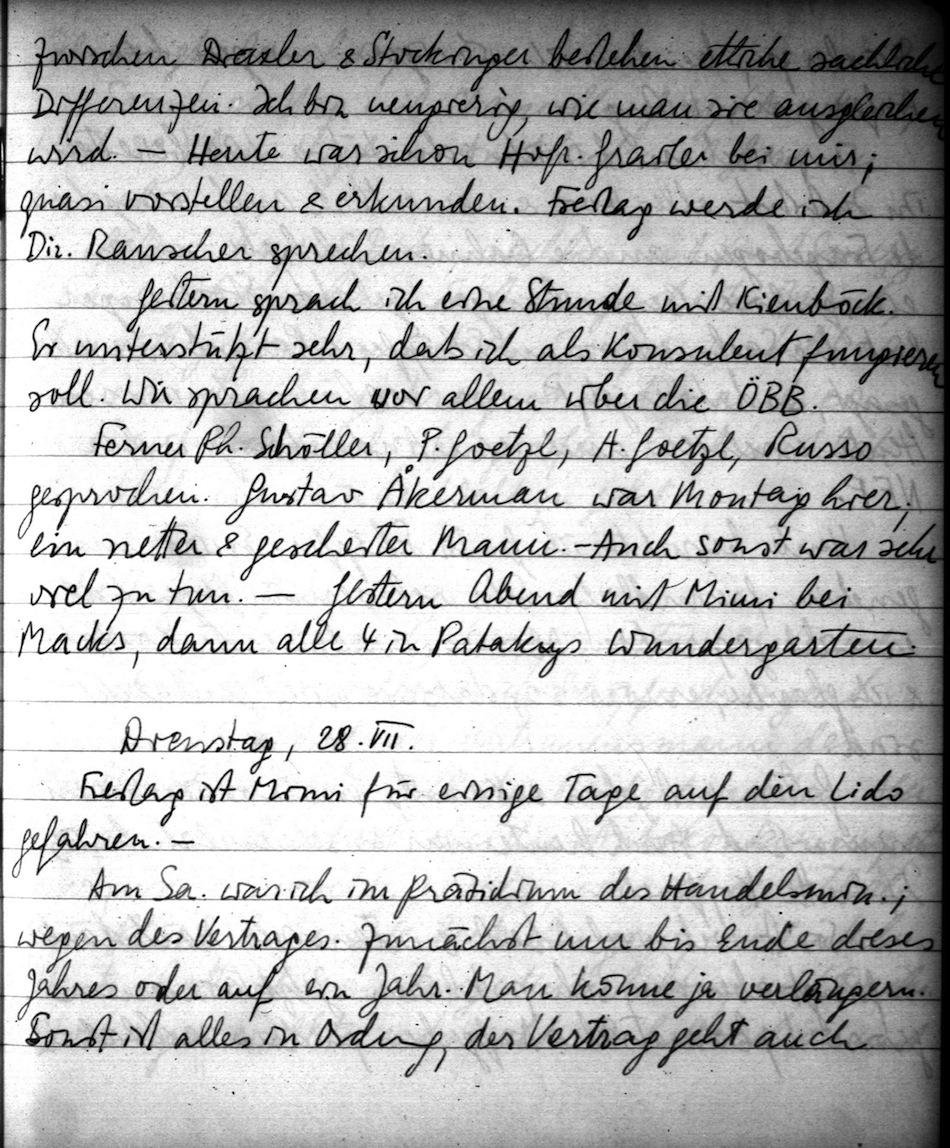 zwischen Draxler & Stockinger bestehen etliche sachliche
Differenzen. Ich bin neugierig, wie man sie ausgleichen
wird. — Heute war schon Hofr. Grailer bei mir;
quasi vorstellen & erkunden. Freitag werde ich
Dir. Rauscher sprechen.
Gestern sprach ich eine Stunde mit Kienböck.
Er unterstützt sehr, daß ich als Konsulent fungieren
soll. Wir sprachen vor allem über die ÖBB.
Ferner Ph. Schöller, P. Goetzl, H. Goetzl, Russo
gesprochen. Gustav Åkerman war Montag hier;
ein netter & gescheiter Mann. – Auch sonst war sehr
viel zu tun. — Gestern Abend mit Mimi bei
Macks, dann alle 4 in Patakys Wundergarten.
Dienstag, 28. VII.
Freitag ist Mimi für einige Tage auf den Lido
gefahren. —
Am Sa. war ich im Präsidium des Handelsmin.;
wegen des Vertrages. Zunächst nur bis Ende dieses
Jahres oder auf ein Jahr. Man könne ja verlängern.
Sonst ist alles in Ordung, der Vertrag geht auch